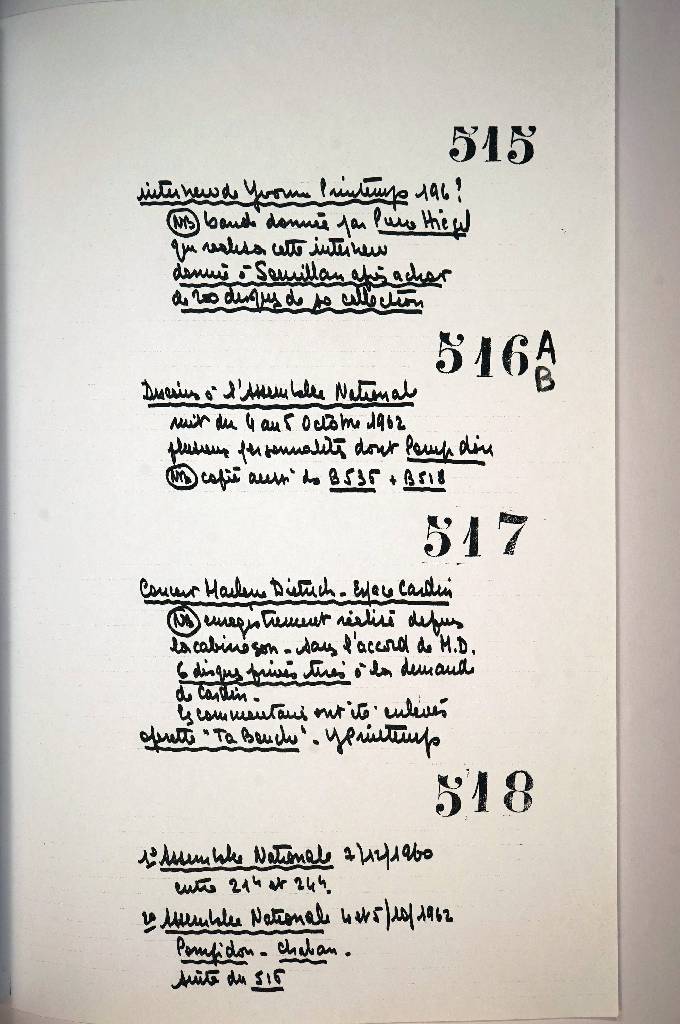 515
interview de Yvonne Printemps 196?
NB bande donnée par Pierre Hiégel
qui réalisa cette interview
donnée à Sevillan après achat
de 200 disques de sa collection
516 A
B
Discours à l'Assemblée National
nuit du 4 au 5 Octobre 1962
plusieurs personnalités dont Pompidou
NB copié aussi B535 + B518
517
Concert Marlene Dietrich - Espace Cardin
NB enregistrement réalisé depuis
la cabine son - sans l'accord de M.D.
6 disques privés tirés à la demande
de Cardin -
les commentaires ont été enlevés
opérette "Ta Bouche" - Y Printemps
518
1º Assemblée Nationale 7/12/1960
entre 21h et 24h.
2º Assemblée Nationale 4 et 5/10/1962
Pompidou - Chaban.
suite du 516